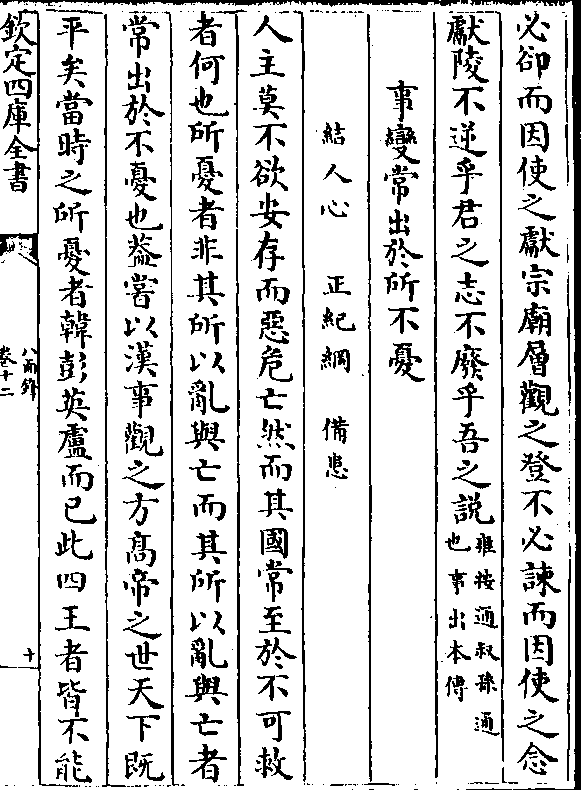 必卻而因使之獻宗廟層觀之登不必諫而因使之念
獻陵不逆乎君之志不廢乎吾之説雍按通叔孫通
也事出本傳
事變常出於所不憂
結人心 正紀綱 備患
人主莫不欲安存而惡危亡然而其國常至於不可救
者何也所憂者非其所以亂與亡而其所以亂與亡者
常出於不憂也葢嘗以漢事觀之方髙帝之世天下既
平矣當時之所憂者韓彭英盧而已此四王者皆不能
欽定四庫全書
八面鋒
卷十二
十